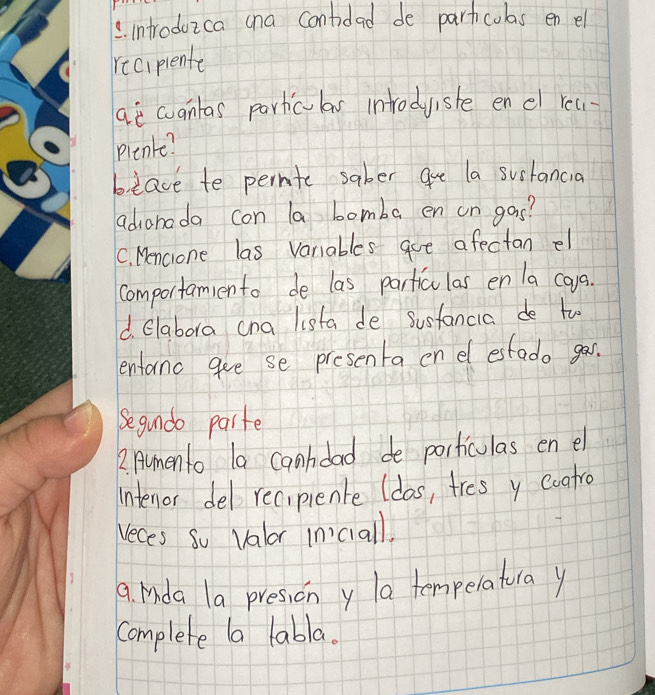 1. introduzca una cantidad de particulas en el
recipiente
a¿ cuantas particulas introdujiste en el reci-
piente?
b.¿ave te permte saber que la sustancia
adionada con la bomba en un gas?
C. Mencione las variables que afectan el
comportamiento de las particulas en la caja.
d. Elabora una lista de sustancia de tu
entorno que se presenta en el estado gas.
Segundo parte
2. Aumento la cantidad de particulas en el
interior del recipiente (dos, tres y cuatro
veces su valor inicial).
a. Mida la presión y la temperatura y
complete la tabla.